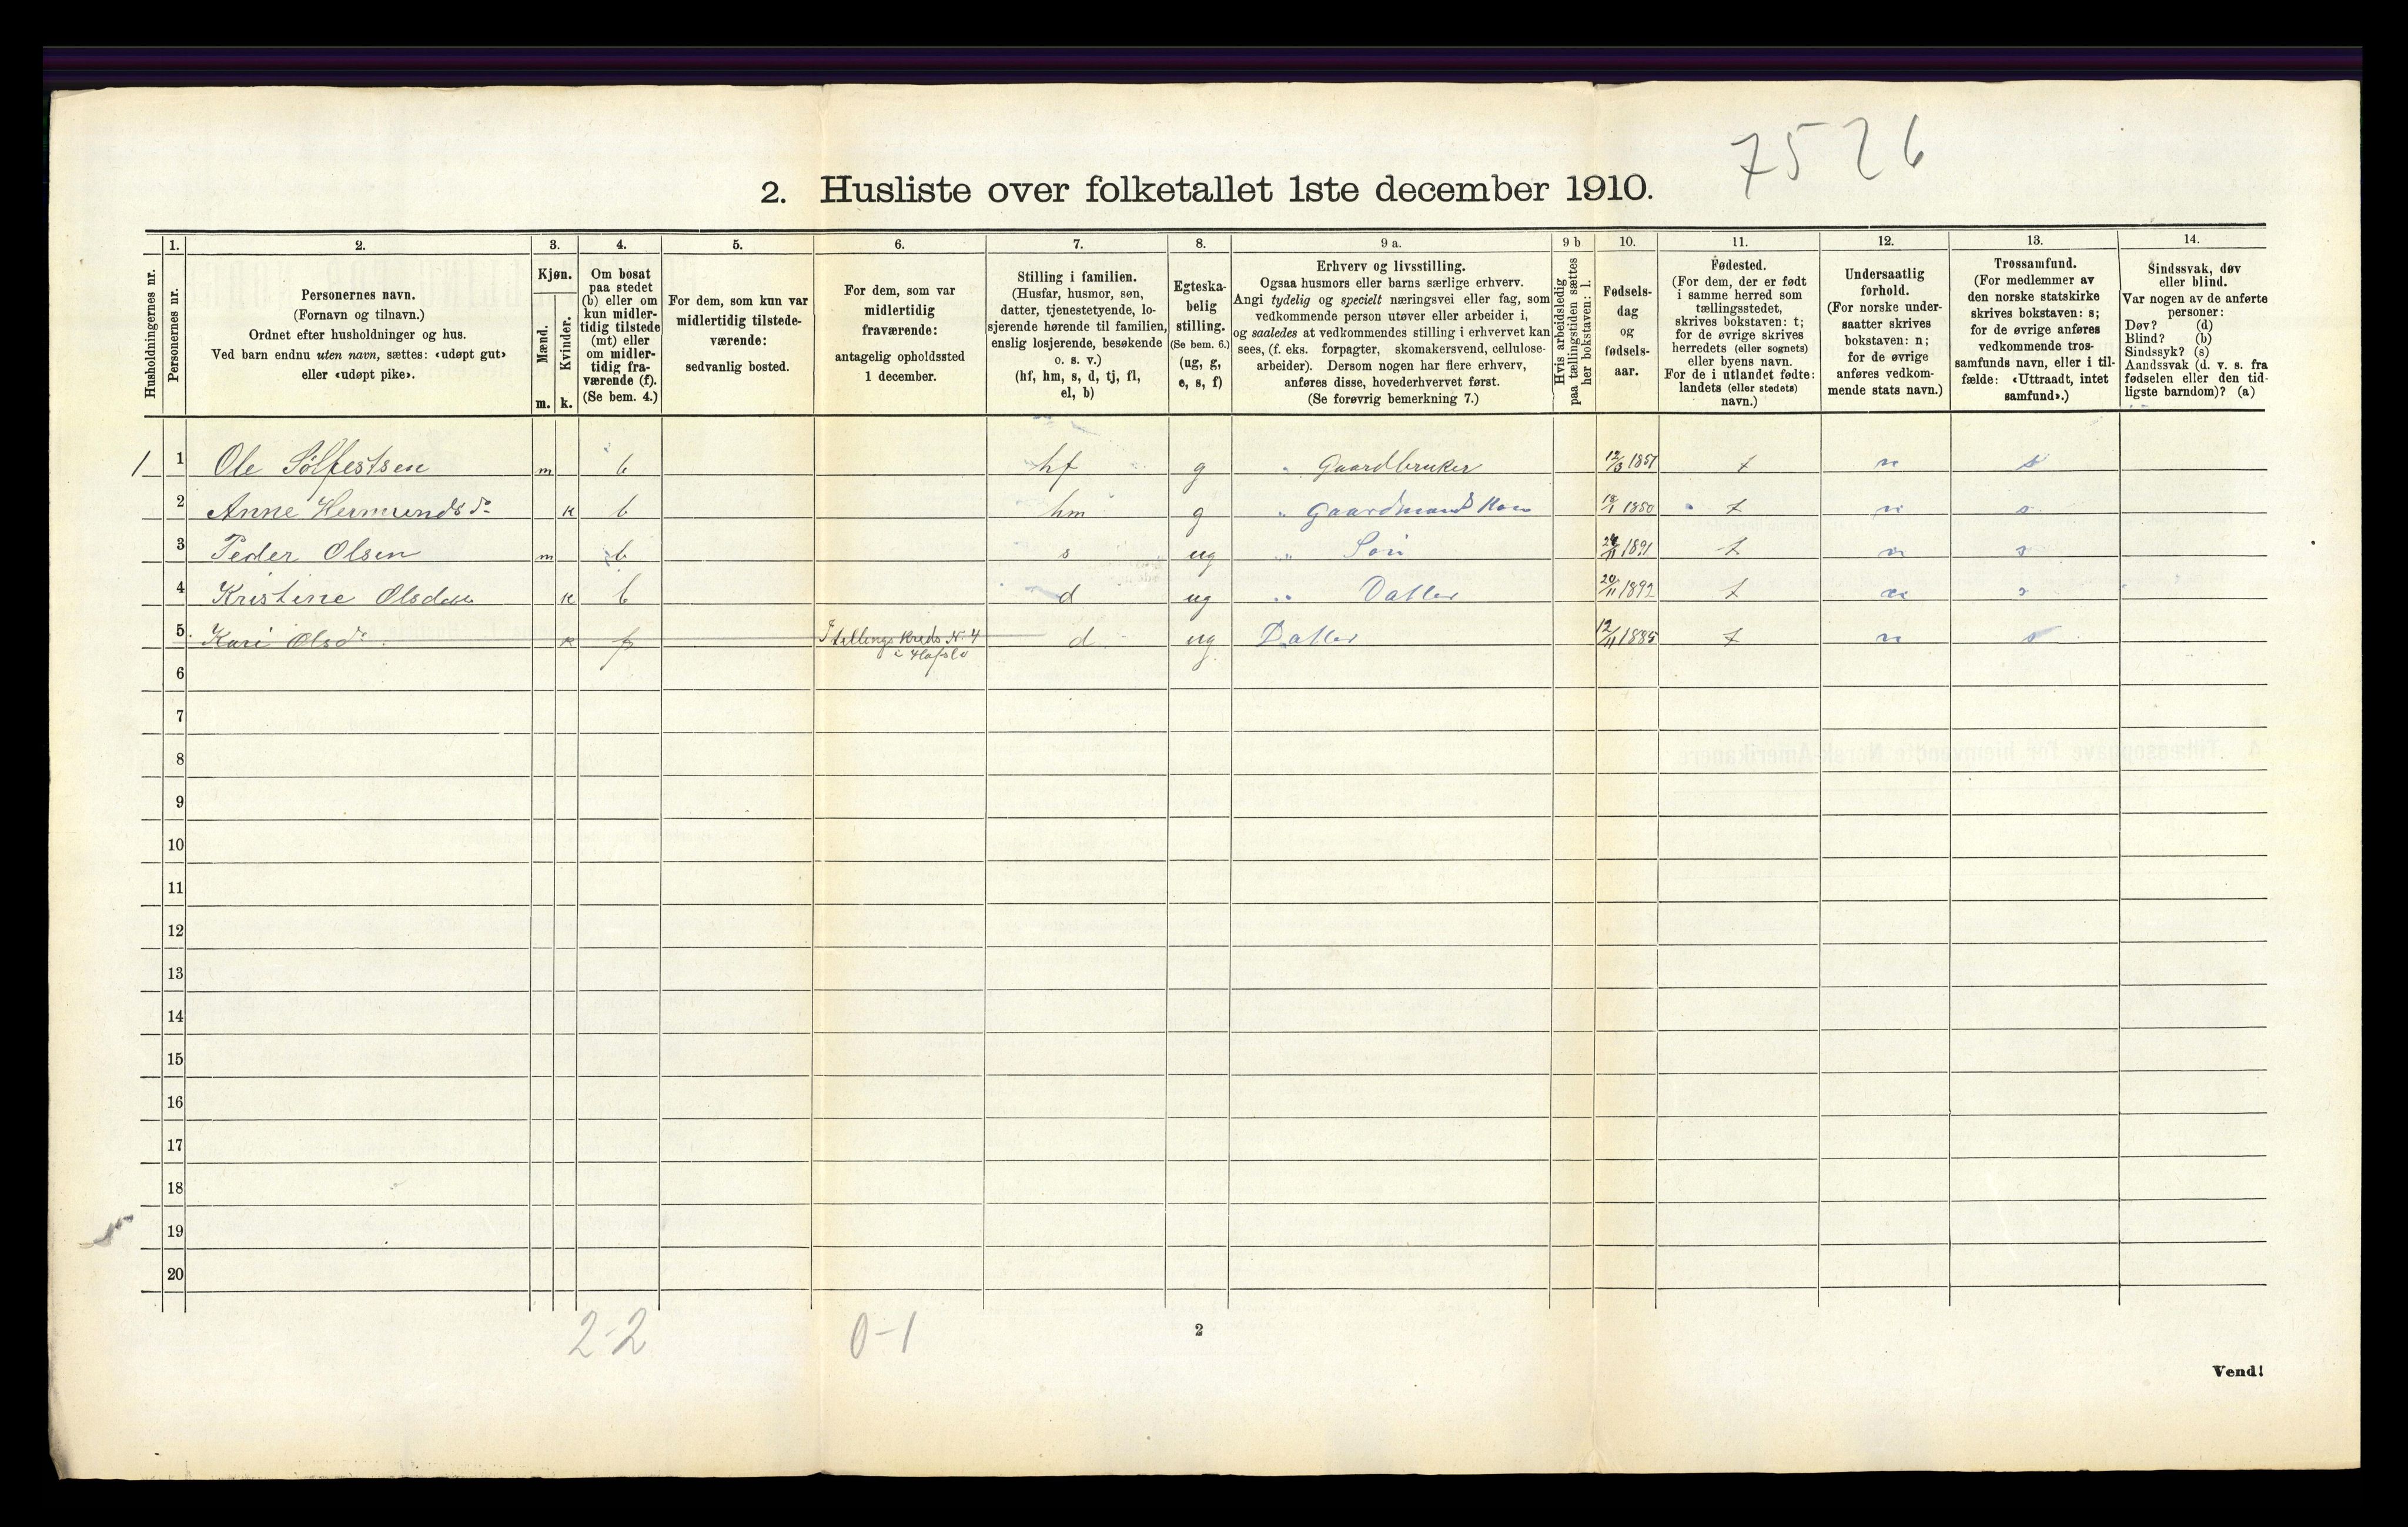 7526
2. Husliste over folketallet 1ste december 1910.
1. 2. 3. 4. 5. 6. 7. 8. 9 a. 9 b 10. 11. 12. 13. 14.
Husholdningernes nr.
Personernes nr.
Personernes navn.
(Fornavn og tilnavn.)
Ordnet efter husholdninger og hus.
Ved barn endnu uten navn, sættes: «udøpt gut»
eller «udøpt pike».
Kjøn.
Mænd.
Kvinder.
m. k.
Om bosat
paa stedet
(b) eller om
kun midler-
tidig tilstede
(mt) eller
om midler-
tidig fra-
værende (f).
(Se bem. 4.)
For dem, som kun var
midlertidig tilstede-
værende:
sedvanlig bosted.
For dem, som var
midlertidig
fraværende:
antagelig opholdssted
1 december.
Stilling i familien.
(Husfar, husmor, søn,
datter, tjenestetyende, lo-
sjerende hørende til familien,
enslig losjerende, besøkende
o. s. v.)
(hf, hm, s, d, tj, fl,
el, b)
Egteska-
belig
stilling.
(Se bem. 6.)
(ug, g,
e, s, f)
Erhverv og livsstilling.
Ogsaa husmors eller barns særlige erhverv.
Angi tydelig og specielt næringsvei eller fag, som
vedkommende person utøver eller arbeider i,
og saaledes at vedkommendes stilling i erhvervet kan
sees, (f. eks. forpagter, skomakersvend, cellulose-
arbeider). Dersom nogen har flere erhverv,
anføres disse, hovederhvervet først.
(Se forøvrig bemerkning 7.)
Hvis arbeidsledig
paa tællingstiden sættes
her bokstaven: l.
Fødsels-
dag
og
fødsels-
aar.
Fødested.
(For dem, der er født
i samme herred som
tællingsstedet,
skrives bokstaven: t;
for de øvrige skrives
herredets (eller sognets)
eller byens navn.
For de i utlandet fødte:
landets (eller stedets)
navn.)
Undersaatlig
forhold.
(For norske under-
saatter skrives
bokstaven: n;
for de øvrige
anføres vedkom-
mende stats navn.)
Trossamfund.
(For medlemmer av
den norske statskirke
skrives bokstaven: s;
for de øvrige anføres
vedkommende tros-
samfunds navn, eller i til-
fælde: «Uttraadt, intet
samfund».)
Sindssvak, døv
eller blind.
Var nogen av de anførte
personer:
Døv? (d)
Blind? (b)
Sindssyk? (s)
Aandssvak (d. v. s. fra
fødselen eller den tid-
ligste barndom)? (a)
1 1 Ole Sølfestsen m b hf g Gaardbruker 12/3 1851 t n s
2 Anne Hermundsd. k b hm g " Gaardmands Kone 1850 t n s
3 Peder Olsen m b s ug " Søn 1891 t n s
4 Kristine Olsdatter k b d ug " Datter 20/11 1892 t n s
5 Kari Olsd. k f Tællings Kreds N. 4 d ug Datter 12/11 1885 t n s
i Hafslo
6
7
8
9
10
11
12
13
14
15
16
17
18
19
20
2-2 0-1
2
Vend!